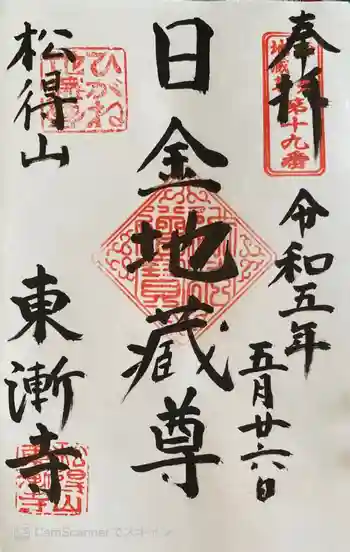 奉拝
第十九番
令和五年
五月廿六日
日金地蔵尊
ひがね
松得山
東漸寺
CamScanner でスキャン